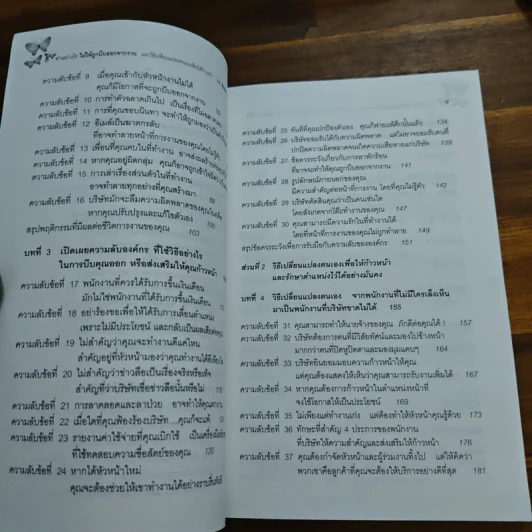 ทำอย่างไร ไม่ให้ถูกบีบออกจากงาน
ความลับข้อที่ 9 เมื่อคุณเข้ากับหัวหน้างานไม่ได้
คุณก็มีโอกาสที่จะถูกบีบออกจากงาน
ความลับข้อที่ 10 การทำตัวฉลาดเกินไป เป็นเรื่อง
ความลับข้อที่ 11 การที่คุณชอบนินทา จะทำให้ถูกมองว่า
ความลับข้อที่ 12 อีเมล์เป็นฆาตกรลับ
ที่อาจทำลายหน้าที่การงานของคุณ
ความลับข้อที่ 13 เพื่อนที่คุณคบในที่ทำงาน
ความลับข้อที่ 14 หากคุณอยู่ผิดกลุ่ม คุณก็อาจถูก
ความลับข้อที่ 15 การเล่าเรื่องส่วนตัวในที่ทำงาน
อาจทำลายทุกอย่างที่คุณสร้างมา 88
ความลับข้อที่ 16 บริษัทมักจะลืมความผิดพลาดของคุณ
หากคุณปรับปรุงและแก้ไขตัวเอง 100
สรุปพฤติกรรมที่มีผลต่อชีวิตการงานของคุณ 103
บทที่ 3 เปิดเผยความลับองค์กร ที่ใช้วิธีอย่างไร
ในการบีบคุณออก หรือส่งเสริมให้คุณก้าวหน้า
ความลับข้อที่ 17 พนักงานที่ควรได้รับการขึ้นเงินเดือน
มักไม่ใช่พนักงานที่ได้รับการขึ้นเงินเดือน
ความลับข้อที่ 18 อย่าร้องขอเพื่อให้ได้รับการเลื่อนตำแหน่ง
เพราะไม่มีประโยชน์ และกลับเป็นผลเสียต่อ
ความลับข้อที่ 19 ไม่สำคัญว่าคุณจะทำงานดีแค่ไหน
สำคัญอยู่ที่หัวหน้ามองว่าคุณทำงานได้ดี
ความลับข้อที่ 20 ไม่สำคัญว่าข่าวลือเป็นเรื่องจริงหรือเท็จ
สำคัญที่ว่าบริษัทเชื่อข่าวลือนั้นหรือไม่
ความลับข้อที่ 21 การลาคลอดและลาป่วย อาจทำให้คุณ
ความลับข้อที่ 22 เมื่อใดที่คุณฟ้องร้องบริษัท ...คุณก็จะแพ้
ความลับข้อที่ 23 รายงานค่าใช้จ่ายที่คุณเบิกใช้
ที่ใช้ทดสอบความซื่อสัตย์ของคุณ 130
ความลับข้อที่ 24 หากได้หัวหน้าใหม่
คุณจะต้องช่วยให้เขาทำงานได้อย่างราบรื่น
9
ความลับข้อที่ 25 ทันทีที่คุณปกป้องตัวเอง คุณก็พ่ายแพ้ศึกนั้นแล้ว 134
ความลับข้อที่ 26 บริษัทยอมรับได้กับความผิดพลาด แต่ไม่อาจยอมรับคนที่
ปกปิดความผิดพลาดจนเกิดความเสียหายแก่บริษัท 139
ความลับข้อที่ 27 ข้อควรระวังเกี่ยวกับการลาพักร้อน
ที่อาจจะทำให้คุณถูกบีบออกจากงาน 141
ความลับข้อที่ 28 รูปลักษณ์ภายนอกของคุณ
มีความสำคัญต่อหน้าที่การงาน โดยที่คุณไม่รู้ตัว 142
ความลับข้อที่ 29 บริษัทตัดสินคุณว่าเป็นคนเช่นใด
โดยสังเกตจากโต๊ะทำงานของคุณ 147
ความลับข้อที่ 30 คุณสามารถมีความรักในที่ทำงานได้
โดยที่หน้าที่การงานของคุณไม่ถูกทำลาย 149
สรุปข้อควรระวังเพื่อการรับมือกับความลับขององค์กร 151
ส่วนที่ 2 วิธีเปลี่ยนแปลงตนเองเพื่อให้ก้าวหน้า
และรักษาตำแหน่งไว้ได้อย่างมั่นคง
บทที่ 4 วิธีเปลี่ยนแปลงตนเอง จากพนักงานที่ไม่มีใครเล็งเห็น
มาเป็นพนักงานที่บริษัทขาดไม่ได้ 155
ความลับข้อที่ 31 คุณสามารถทำให้นายจ้างของคุณ ภักดีต่อคุณได้ ! 157
ความลับข้อที่ 32 บริษัทต้องการคนที่มีวิสัยทัศน์และมองไปข้างหน้า
มากกว่าคนที่ปิดหูปิดตาและมองมุมแคบๆ 164
ความลับข้อที่ 33 บริษัทยินยอมมอบความก้าวหน้าให้คุณ
แต่คุณต้องแสดงให้เห็นว่าคุณสามารถรับงานเพิ่มได้ 167
ความลับข้อที่ 34 หากคุณต้องการก้าวหน้าในตำแหน่งหน้าที่
จงใช้โอกาสให้เป็นประโยชน์ 169
ความลับข้อที่ 35 ไม่เพียงแต่ทำงานเก่ง แต่ต้องทำให้หัวหน้าคุณรู้ด้วย 173
ความลับข้อที่ 36 ทักษะที่สำคัญ 4 ประการของพนักงาน
ที่บริษัทให้ความสำคัญและส่งเสริมให้ก้าวหน้า 176
ความลับข้อที่ 37 คุณต้องกำจัดหัวหน้าและผู้ร่วมงานทิ้งไป แต่ให้คิดว่า
พวกเขาคือลูกค้าที่คุณจะต้องให้บริการอย่างดีที่สุด 181